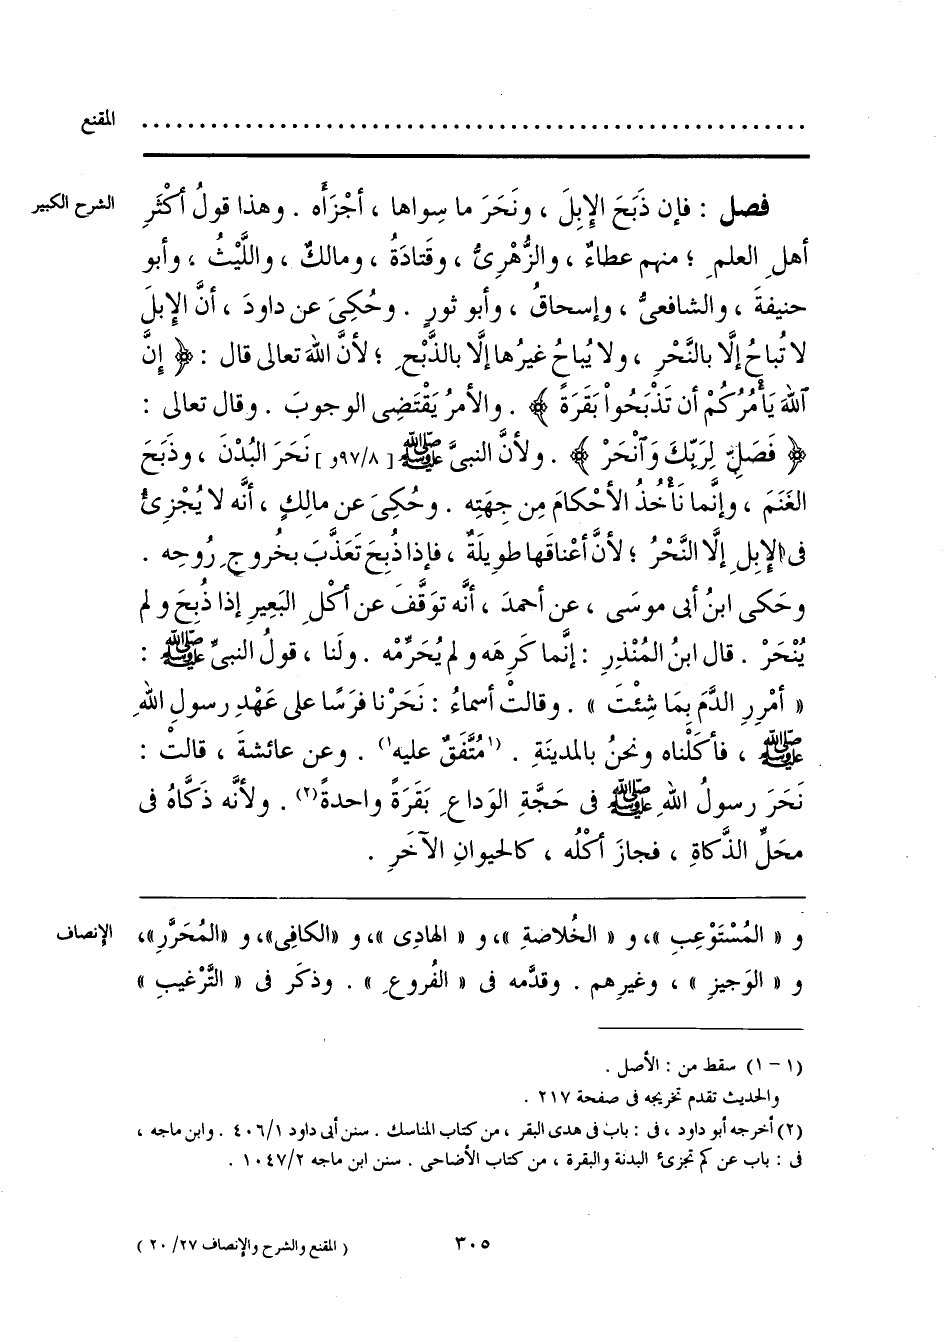 المقنع ............................................................
الشرح الكبير
فصل : فإن ذَبَحَ الإِبِلَ ، ونَحَرَ ما سِواها ، أجْزَأَه . وهذا قولُ أكْثَرِ
أهلِ العلمِ ؛ منهم عطاءٌ ، والزُّهْرِىُّ ، وقَتادَةُ ، ومالكٌ ، واللَّيْثُ ، وأبو
حنيفةَ ، والشافعىُّ ، وإسحاقُ ، وأبو ثورٍ . وحُكِىَ عن داودَ ، أنَّ الإِبلَ
لا تُباحُ إلَّا بالنَّحْرِ ، ولا يُباحُ غيرُها إلَّا بالذَّبْحِ ؛ لأنَّ اللهَ تعالى قال : ﴿ إِنَّ
ٱللَّهَ يَأْمُرُكُمْ أَن تَذْبَحُواْ بَقَرَةً ﴾ . والأمرُ يَقْتَضِى الوجوبَ . وقال تعالى :
﴿ فَصَلِّ لِرَبِّكَ وَٱنْحَرْ ﴾ . ولأنَّ النبىَّ ﷺ [ ٩٧/٨و ] نَحَرَ البُدْنَ ، وذَبَحَ
الغَنَمَ ، وإنَّما نَأْخُذُ الأحْكامَ مِن جِهَتِه . وحُكِىَ عن مالكٍ ، أنَّه لا يُجْزِئُ
فى الإِبلِ إلَّا النَّحْرُ ؛ لأنَّ أعْناقَها طويلَةٌ ، فإذا ذُبِحَ تَعَذَّبَ بخُروجِ رُوحِه .
وحَكى ابنُ أبى موسَى ، عن أحمدَ ، أنَّه توَقَّفَ عن أكْلِ البَعيرِ إذا ذُبِحَ ولم
يُنْحَرْ . قال ابنُ المُنْذِرِ : إنَّما كَرِهَه ولم يُحَرِّمْه . ولَنا ، قولُ النبىِّ ﷺ :
« أَمْرِرِ الدَّمَ بِمَا شِئْتَ » . وقالتْ أسماءُ : نَحَرْنا فرَسًا على عَهْدِ رسولِ اللهِ
ﷺ ، فأكَلْناه ونحنُ بالمدينَةِ . (١مُتَّفَقٌ عليه١) . وعن عائشةَ ، قالتْ :
نَحَرَ رسولُ اللهِ ﷺ فى حَجَّةِ الوَداعِ بَقَرَةً واحدةً(٢) . ولأنَّه ذَكَّاهُ فى
محَلِّ الذَّكاةِ ، فجازَ أكْلُه ، كالحيوانِ الآخَرِ .
الإنصاف
و « المُسْتَوْعِبِ »، و « الخُلاصةِ »، و « الهادِى »، و «الكافِى»، و «المُحَرَّرِ»،
و « الوَجيزِ » ، وغيرِهم . وقدَّمه فى « الفُروعِ » . وذكَر فى « التَّرْغيبِ »
(١ - ١) سقط من : الأصل .
والحديث تقدم تخريجه فى صفحة ٢١٧ .
(٢) أخرجه أبو داود ، فى : باب فى هدى البقر ، من كتاب المناسك . سنن أبى داود ٤٠٦/١ . وابن ماجه ،
فى : باب عن كم تجزئ البدنة والبقرة ، من كتاب الأضاحى . سنن ابن ماجه ١٠٤٧/٢ .
٣٠٥
( المقنع والشرح والإنصاف ٢٠/٢٧ )